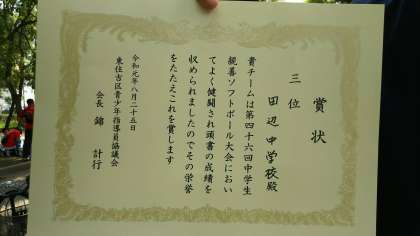 賞状
三位
田辺中学校殿
貴チームは第四十六回中学生
親善ソフトボール大会におい
てよく健闘され頭書の成績を
収められましたのでその栄誉
をたたえこれを賞します
令和元年八月二十五日
東住吉区青少年指導員協議会
会長 錦 計行